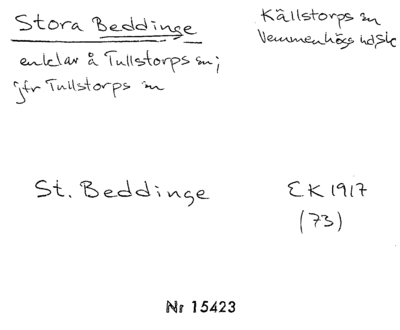 Stora Beddinge
Källstorps sn
Vemmenhögs hd, Sk
enklav å Tullstorps sn;
jfr Tullstorps sn
St. Beddinge
EK 1917
(73)
Nr 15423